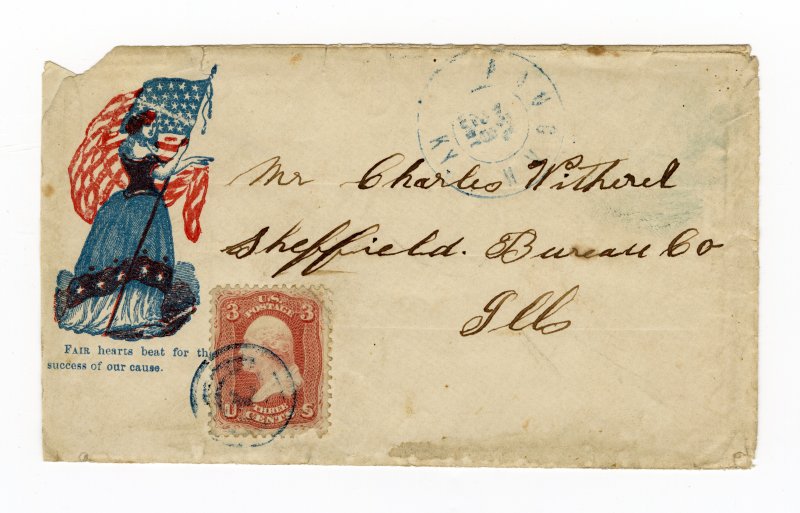 Mr Charles Witherel
Sheffield. Bureau Co
Ills
FAIR hearts beat for th
success of our cause.
U.S.
POSTAGE
3 3
U S
THREE
CENTS
KY